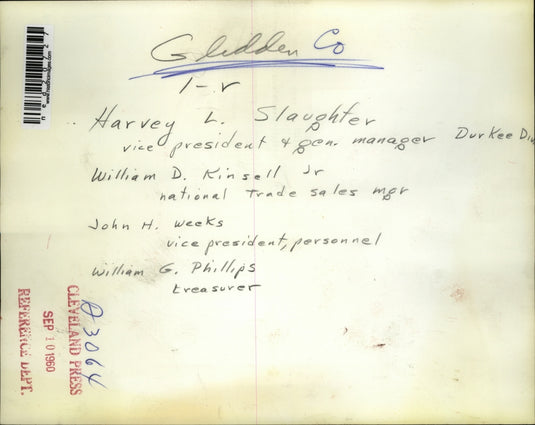 Glidden Co
l-r
Harvey L. Slaughter
vice president & gen. manager Durkee Div
William D. Kinsell Jr
national Trade sales mgr
John H. Weeks
vice president, personnel
William G. Phillips
treasurer
A3064
CLEVELAND PRESS
SEP 10 1960
REFERENCE DEPT.